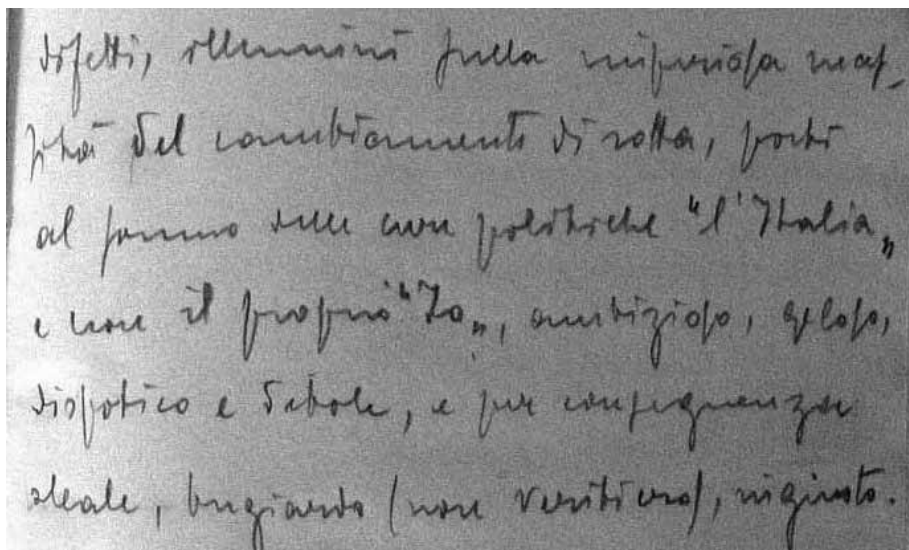 difetti, illumini sulla misteriosa neces-
sità del cambiamento di rotta, porti
al sommo delle cose politiche "l'Italia„
e non il proprio "Io„, ambizioso, geloso,
dispotico e debole, e per conseguenza
sleale, bugiardo (non veritiero), ingiusto.